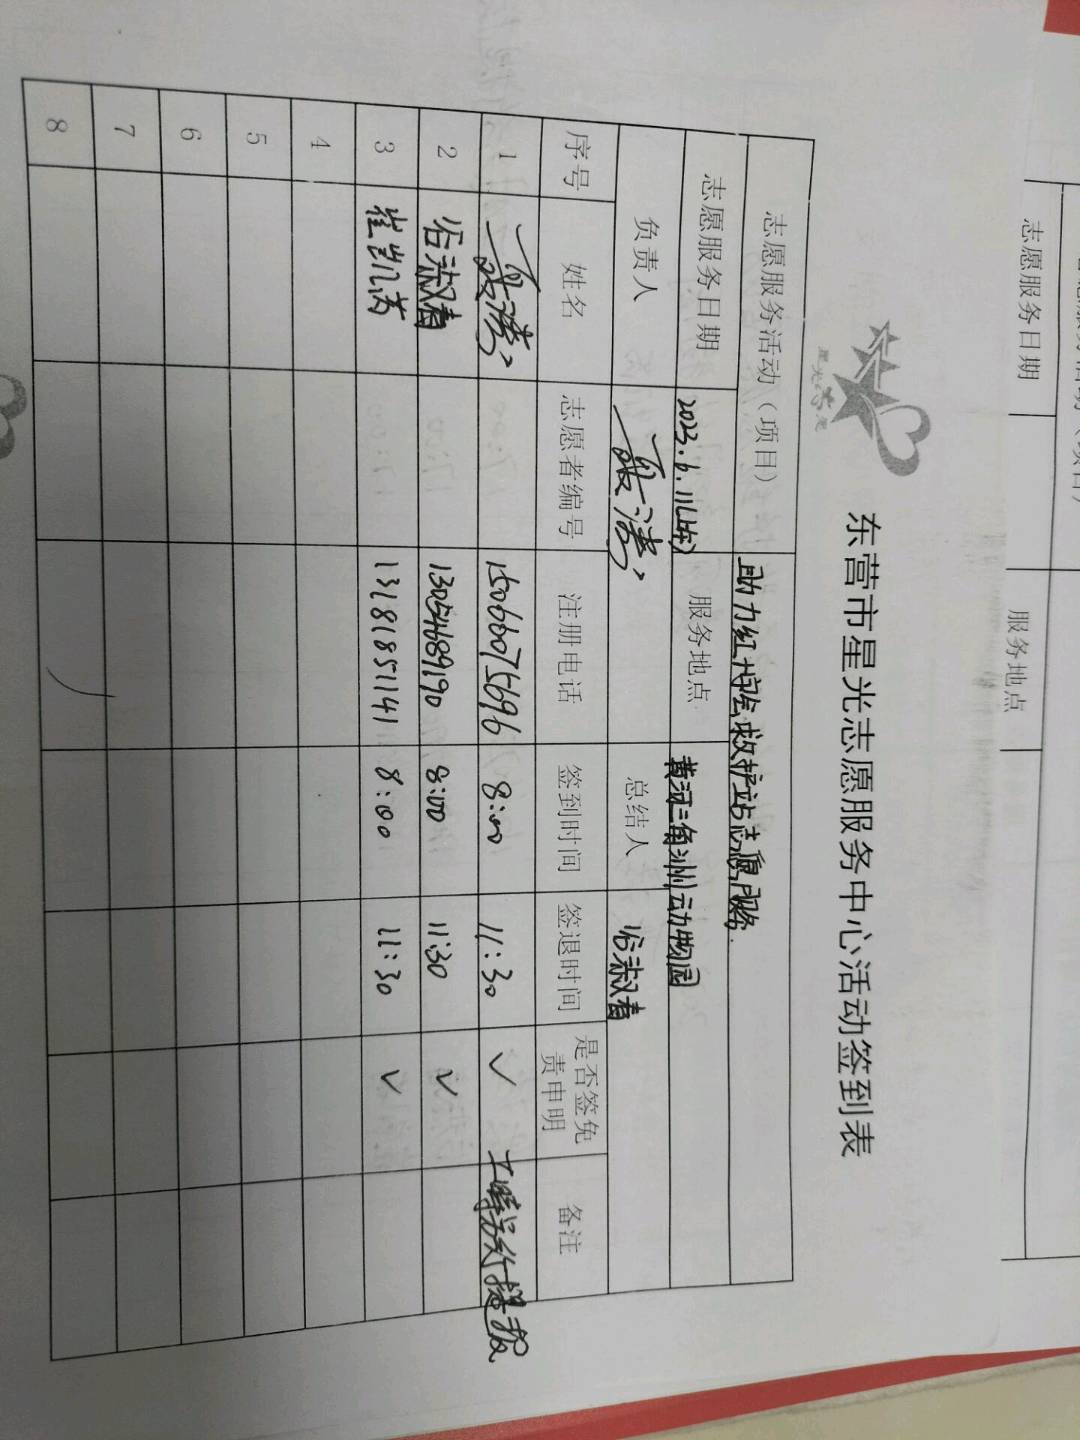 志愿服务日期 服务地点
星光志愿
东营市星光志愿服务中心活动签到表
志愿服务活动（项目） 助力红十字会救护站志愿服务.
志愿服务日期 2023.6.11(上午) 服务地点 黄河三角洲动物园
负责人 总结人 谷淑春
序号 姓名 志愿者编号 注册电话 签到时间 签退时间 是否签免责申明 备注
1 15066075696 8:00 11:30 ✓
2 谷淑春 13054689190 8:00 11:30 ✓
3 崔凯芮 13181851141 8:00 11:30 ✓
4
5
6
7
8